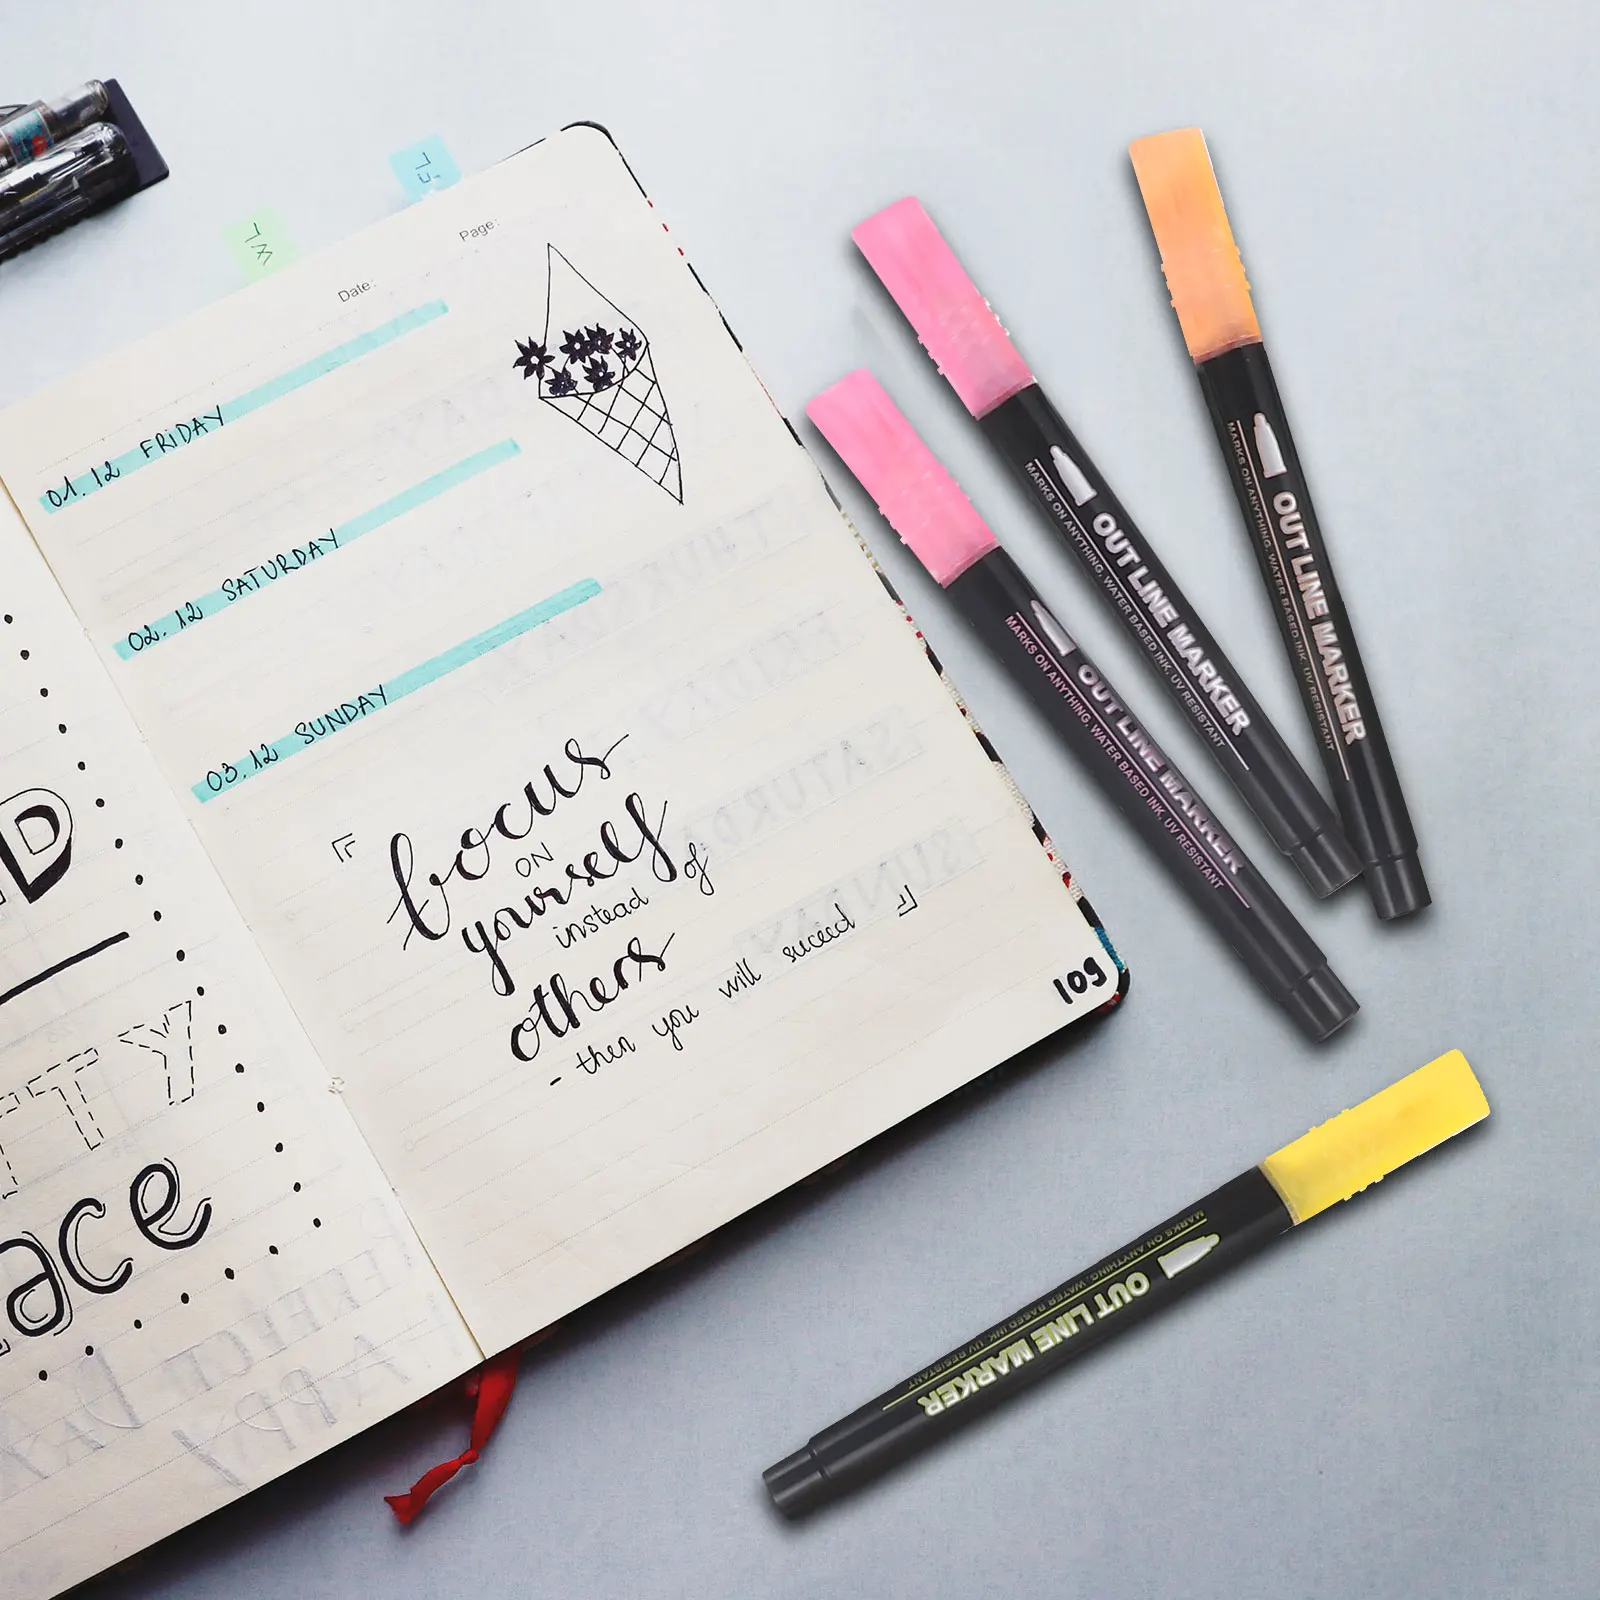 Page:
Date:
01.12 FRIDAY
02.12 SATURDAY
03.12 SUNDAY
focus
ON
yourself
instead of
others
- then you will succed
109
D
TTY
ace
OUT LINE MARKER
MARKS ON ANYTHING, WATER BASED INK, UV RESISTANT
OUT LINE MARKER
MARKS ON ANYTHING, WATER BASED INK, UV RESISTANT
OUT LINE MARKER
MARKS ON ANYTHING, WATER BASED INK, UV RESISTANT
OUT LINE MARKER
MARKS ON ANYTHING, WATER BASED INK, UV RESISTANT